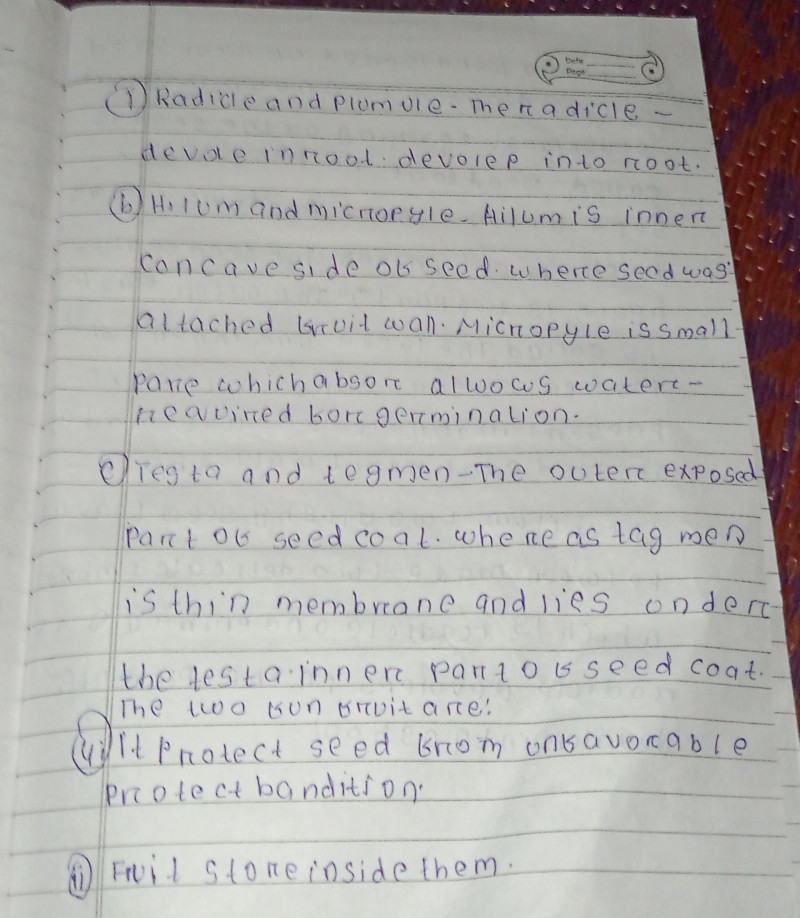 Date
Page
① Radicle and plumule - The radicle -
devole in root. devolep into root.
ⓑ Hilum and micropyle - Hilum is inner
Concave side of seed. where seed was
attached fruit wall. Micropyle is small
pare which absor allwows water -
reavired for germination.
ⓒ Testa and tegmen - The outer exposed
part of seed coat. where as tagmen
is thin membrane and lies onder
the testa. inner part of seed coat.
The two fun fruit are:
It protect seed from unfavorable
protect bandition.
ⓘⓘ Fruit store inside them.